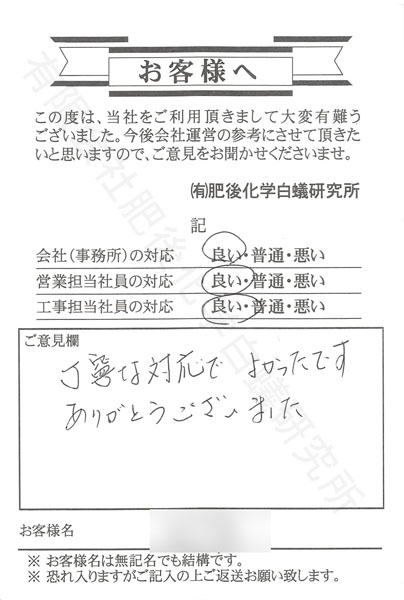 お客様へ
この度は、当社をご利用頂きまして大変有難う
ございました。今後会社運営の参考にさせて頂きた
いと思いますので、ご意見をお聞かせくださいませ。
㈲肥後化学白蟻研究所
記
会社（事務所）の対応 良い・普通・悪い
営業担当社員の対応 良い・普通・悪い
工事担当社員の対応 良い・普通・悪い
ご意見欄
丁寧な対応で よかったです
ありがとうございました
お客様名
※ お客様名は無記名でも結構です。
※ 恐れ入りますがご記入の上ご返送お願い致します。
有限会社肥後化学白蟻研究所